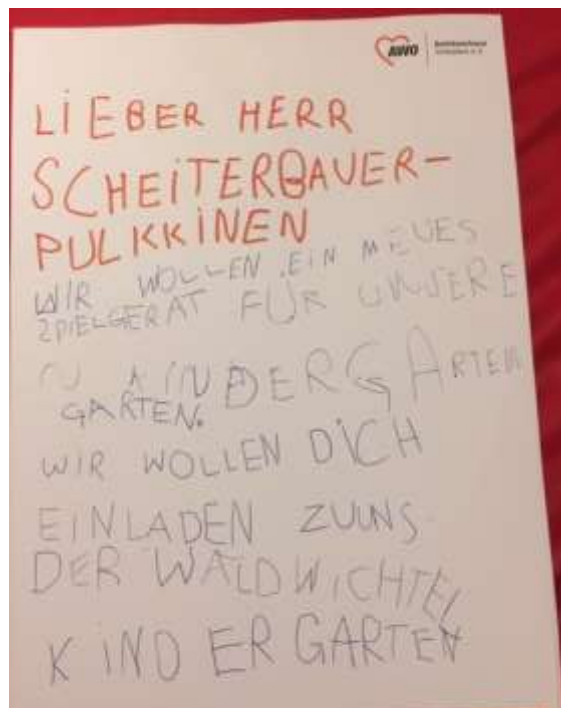 AWO
LiEBER HERR
SCHEiTERBAUER-
PULKKiNEN
WIR WOLLEN EIN NEUES
SPIELGERÄT FÜR UNSERE
KINDERGARTEN
GARTEN.
WIR WOLLEN DiCH
EINLADEN ZUUNS.
DER WALDWICHTEL
KiNDERGARTEN